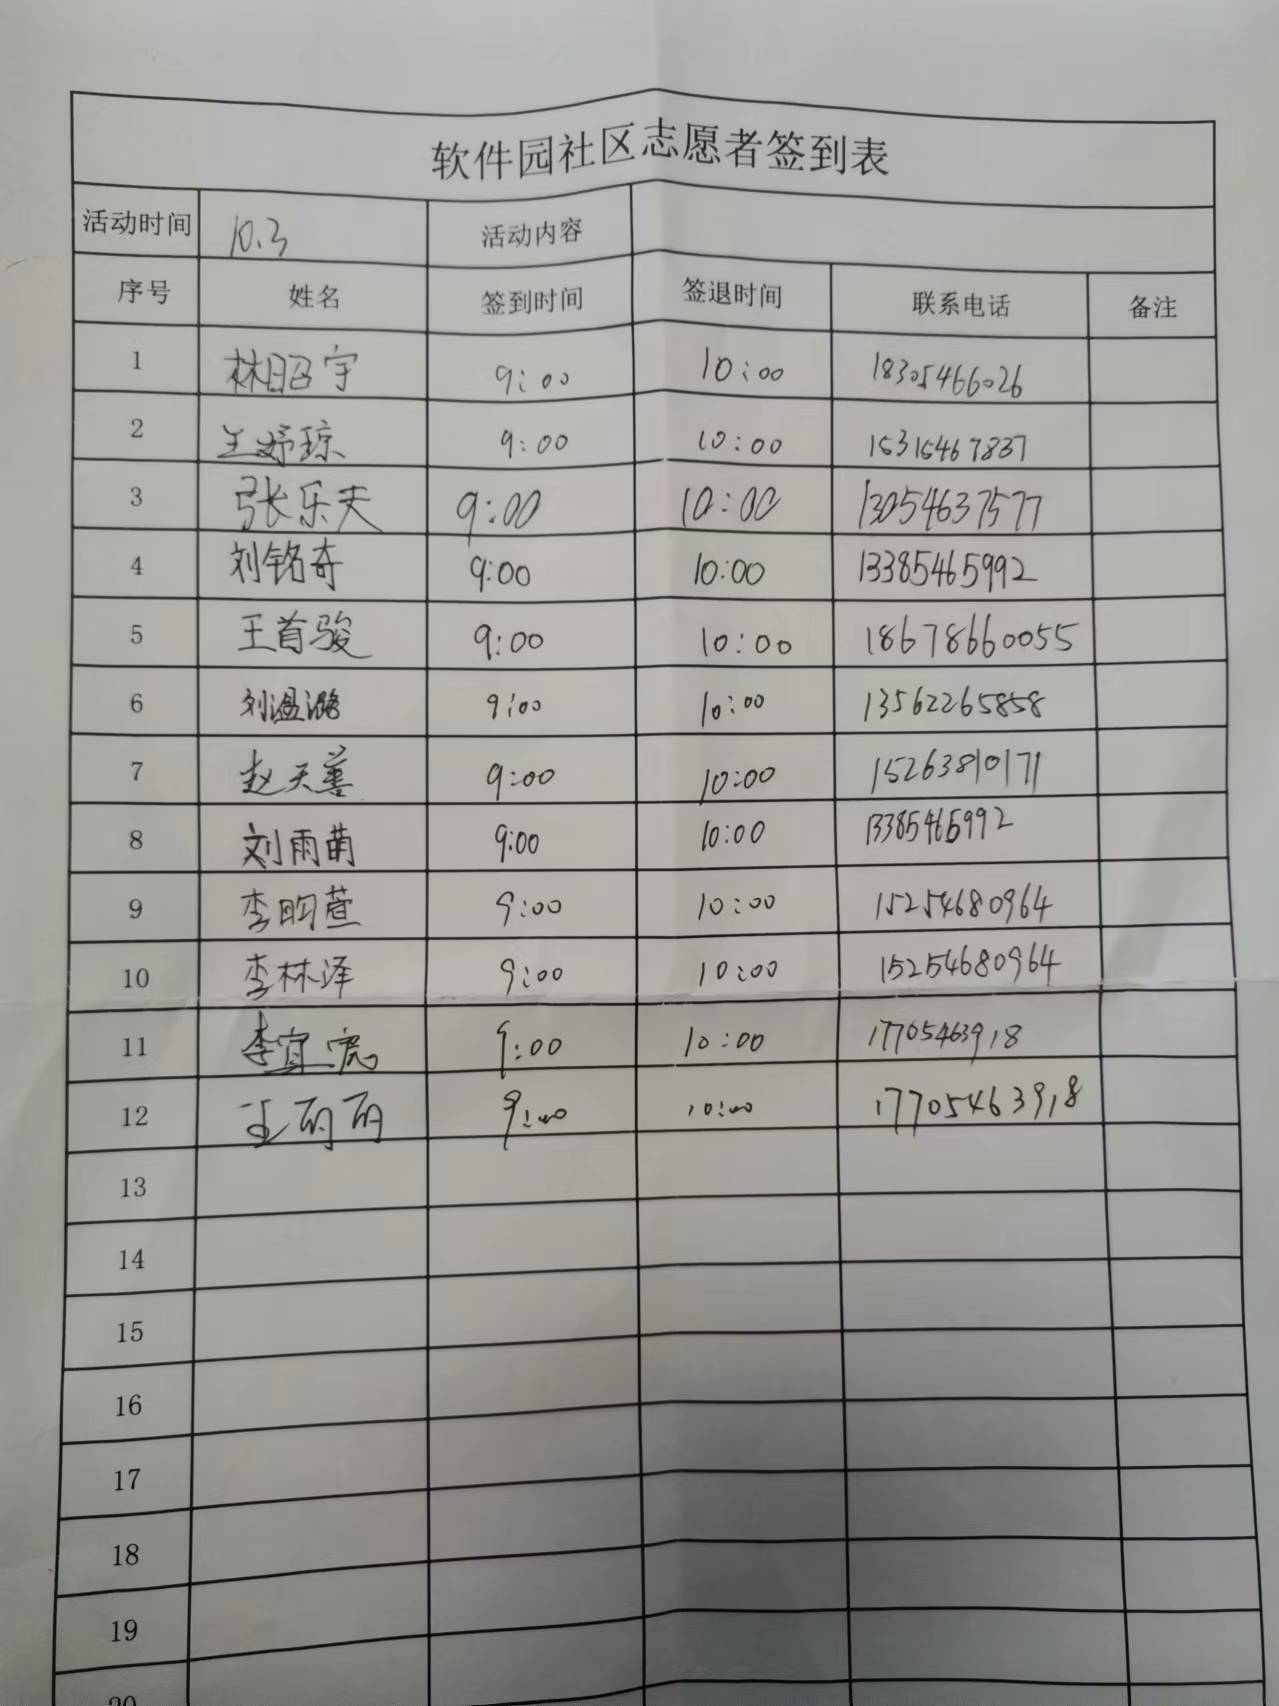 软件园社区志愿者签到表
活动时间 10.3 活动内容
序号 姓名 签到时间 签退时间 联系电话 备注
1 林昭宇 9:00 10:00 18305466026
2 王妤琼 9:00 10:00 15315467837
3 张乐天 9:00 10:00 13054637577
4 刘铭奇 9:00 10:00 13385465992
5 王首骏 9:00 10:00 18678660055
6 刘温潞 9:00 10:00 13562265858
7 赵天善 9:00 10:00 15263810171
8 刘雨萌 9:00 10:00 13385465992
9 李昀萱 9:00 10:00 15254680964
10 李林泽 9:00 10:00 15254680964
11 李宜宽 9:00 10:00 17705463918
12 王丽丽 9:00 10:00 17705463918
13
14
15
16
17
18
19
20